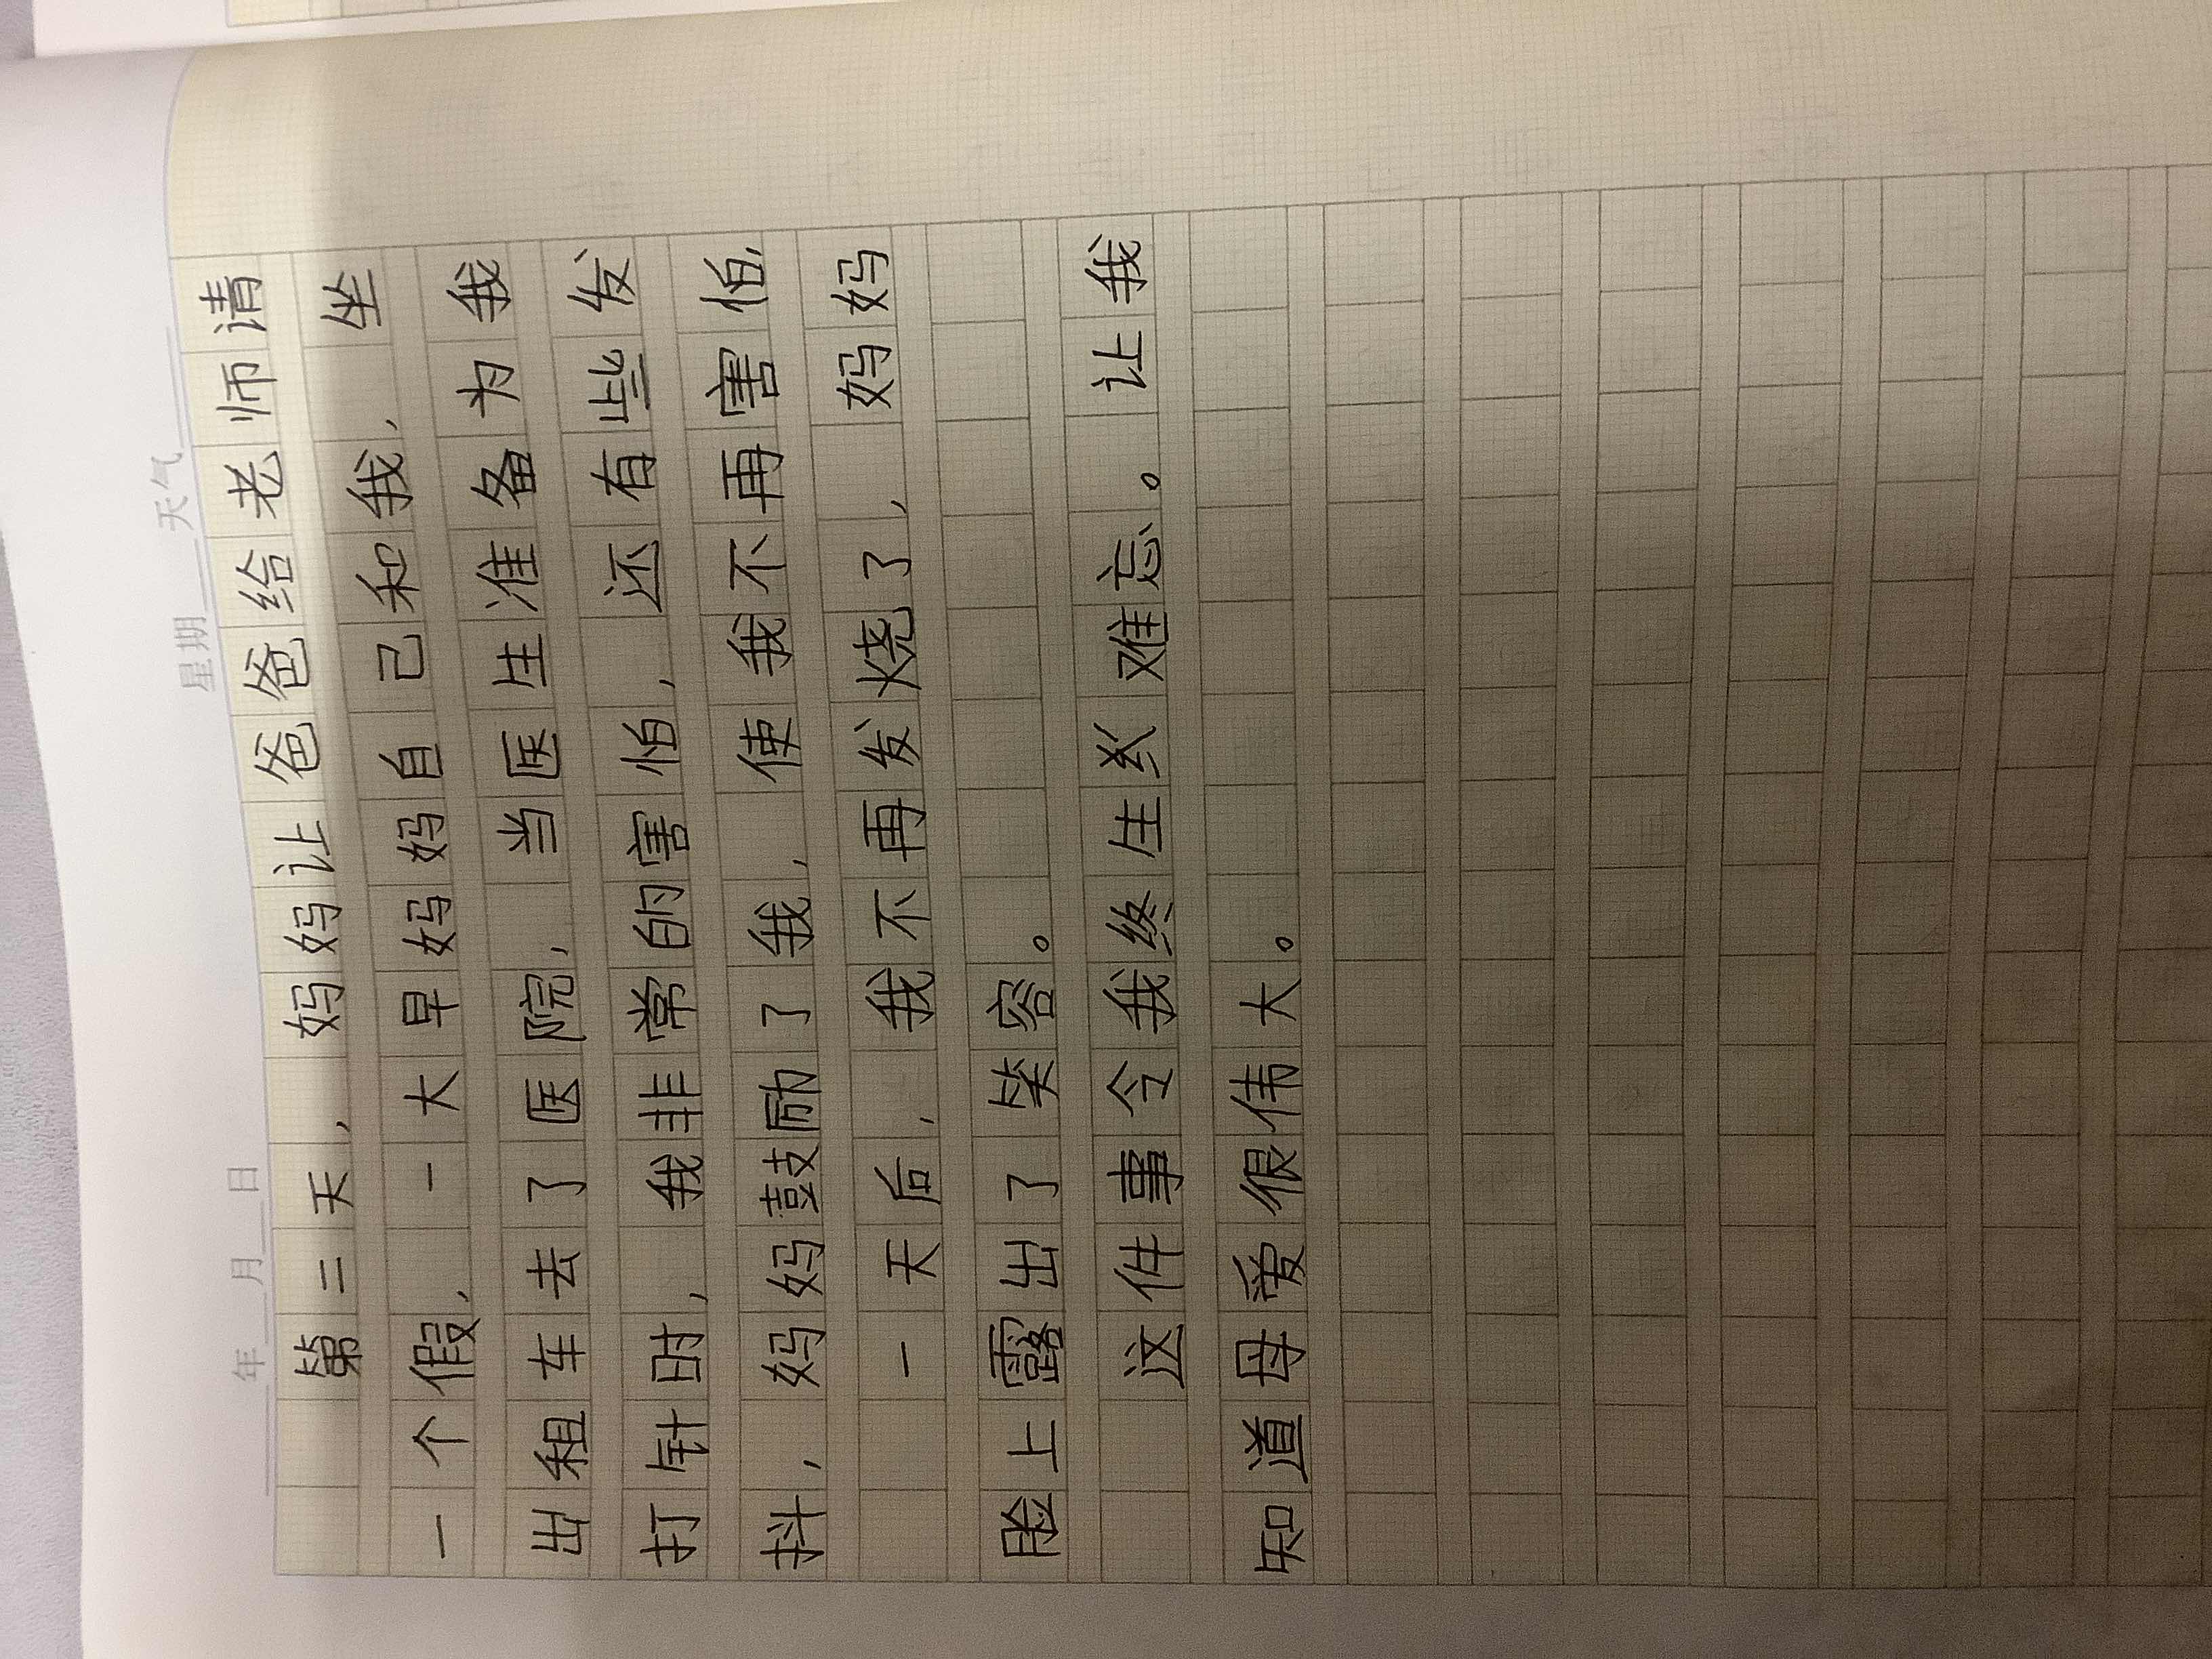 年 月 日 星期 天气
第二天，妈妈让爸爸给老师请
一个假，一大早妈妈自己和我，坐
出租车去了医院，当医生准备为我
打针时，我非常的害怕，还有些发
抖，妈妈鼓励了我，使我不再害怕，
一天后，我不再发烧了，妈妈
脸上露出了笑容。
这件事令我终生难忘。让我
知道母爱很伟大。